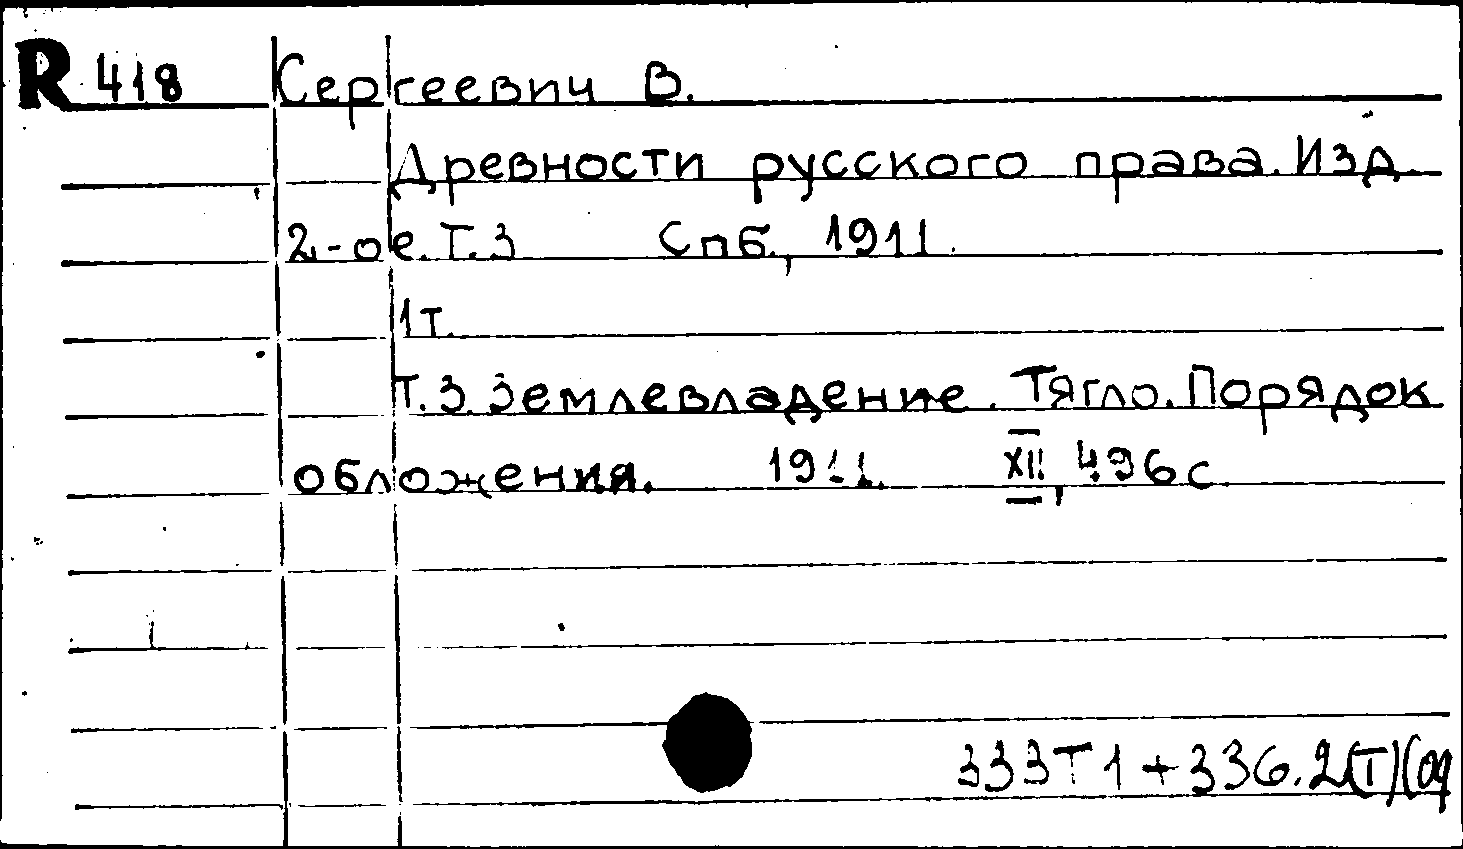 R 418 Сергеевич В.
Древности русского права. Изд.
2-ое. Т. 3 Спб., 1911.
1 т.
Т. 3. Землевладение. Тягло. Порядок
обложения. 1911. XII, 496 с.
333Т1+336.2(Т)(09